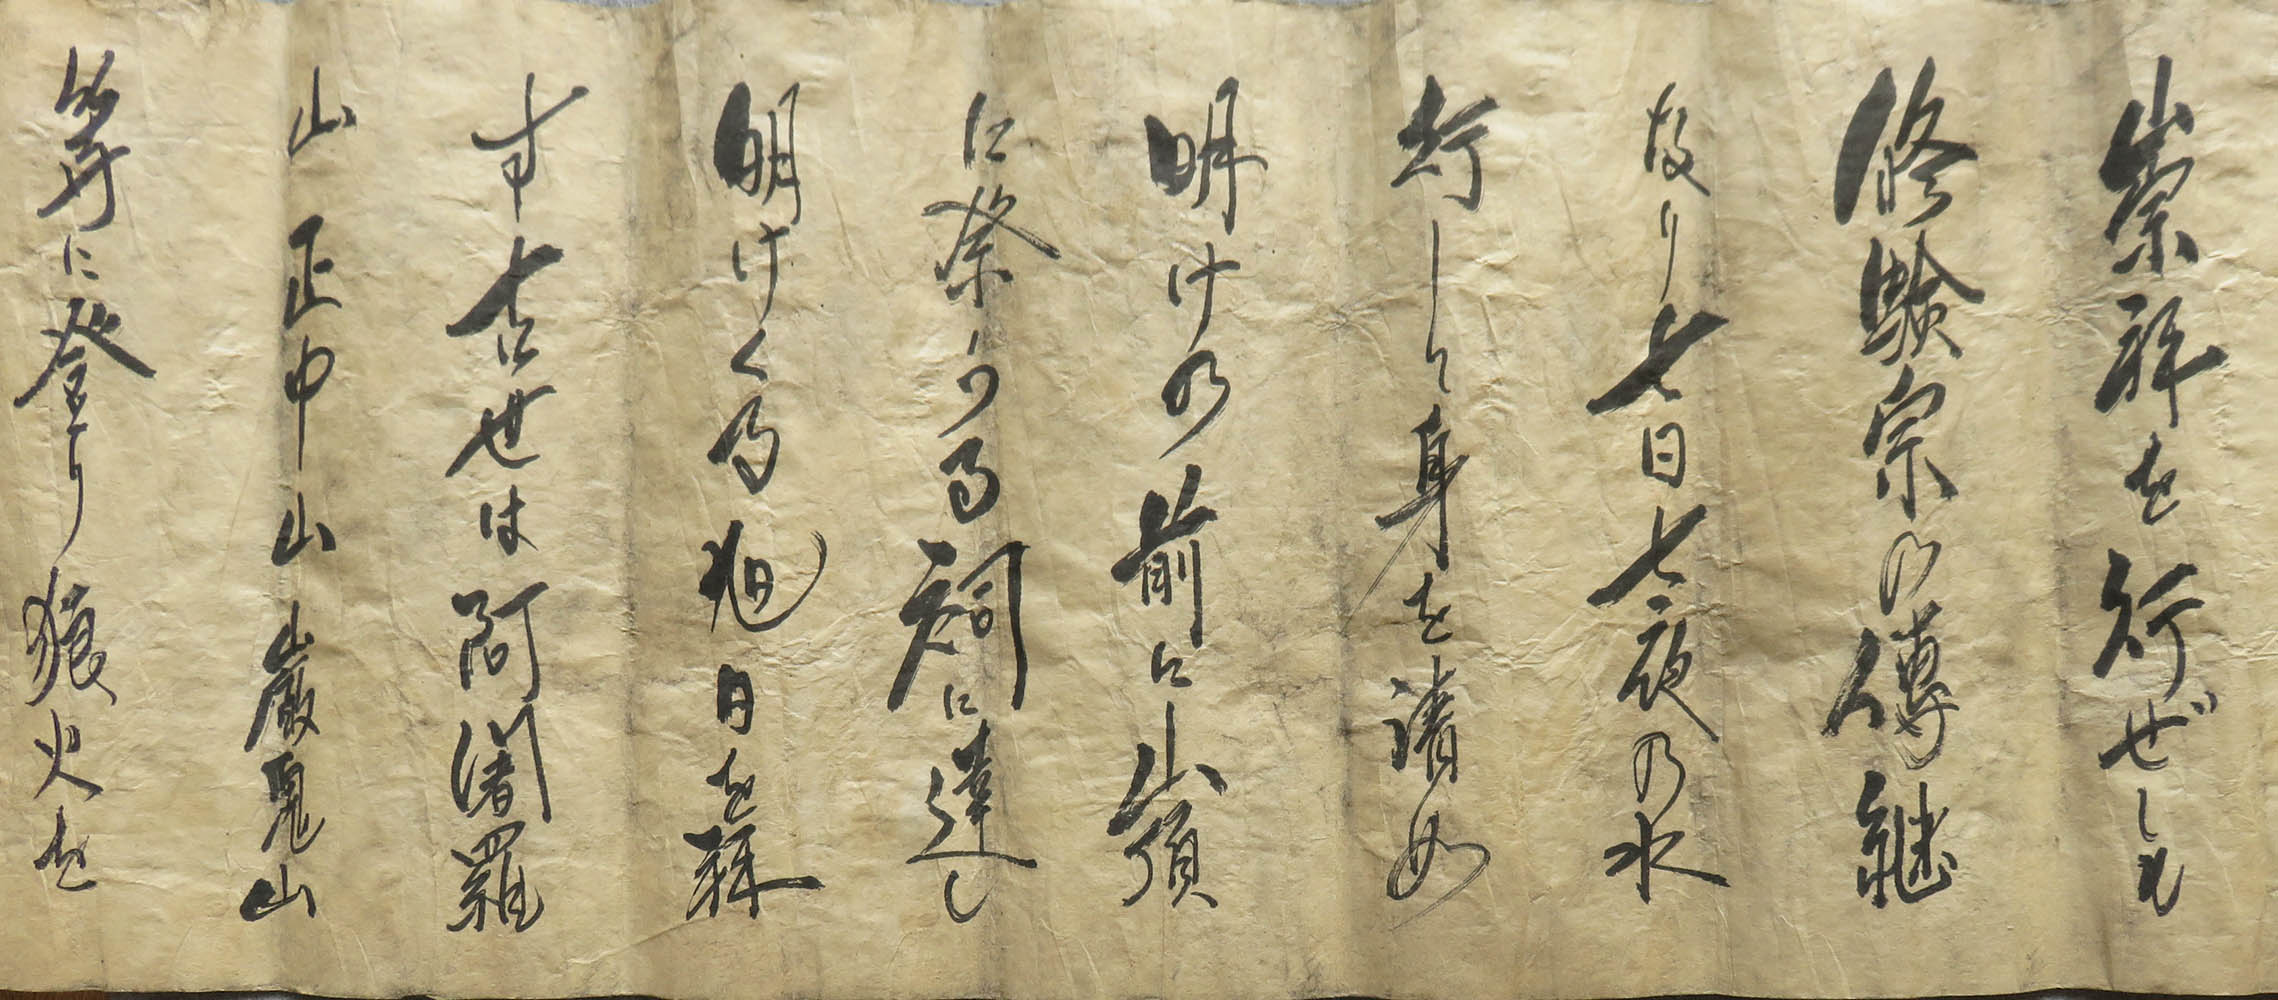 崇拝を行ぜしも
修験宗の傳継
故り七日七夜の水
行して身を清め
明けの前に山頂
に祭りる祠に達し
明けくる旭日を拝
す古せは阿闍羅
山正中山巌鬼山
等に登り狼火を